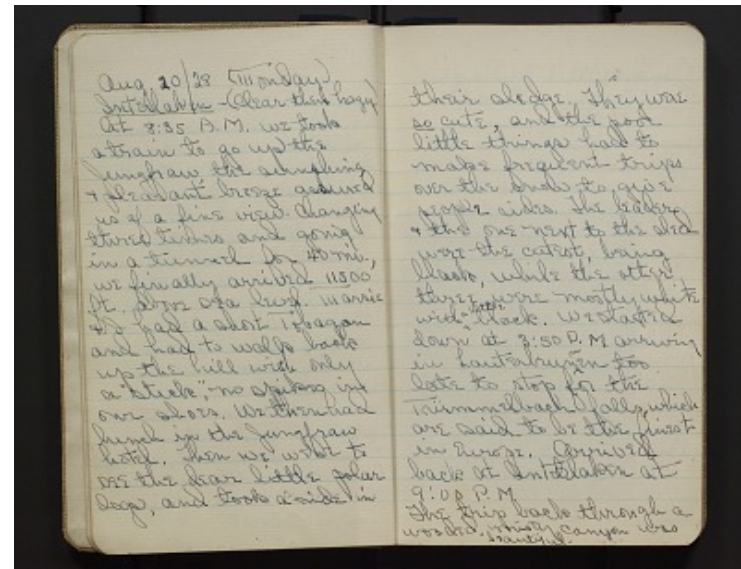 Aug 20/28 (Monday)
Interlaken - (Clear then hazy)
At 8:35 A.M. we took
a train to go up the
Jungfrau, the sunshine
+ pleasant breeze assured
us of a fine view. Changing
three times and going
in a tunnel for 40 mi.,
we finally arrived 11500
ft. above sea level. Marnie
+ I had a short Tobogan
and had to walk back
up the hill with only
a "stick", no spikes in
our shoes. We then had
lunch in the Jungfrau
hotel. Then we went to
see the dear little polar
dogs, and took a ride in
their sledge. They were
so cute, and the poor
little things had to
make frequent trips
over the snow to give
people rides. The leader
+ the one next to the sled
were the cutest, being
black, while the other
three were mostly white
with little black. We started
down at 3:50 P.M arriving
in Lauterbrunen too
late to stop for the
Trummelbach falls, which
are said to be the finest
in Europe. Arrived
back at Interlaken at
9:00 P.M.
The trip back through a
wooded, misty canyon was
beautiful.